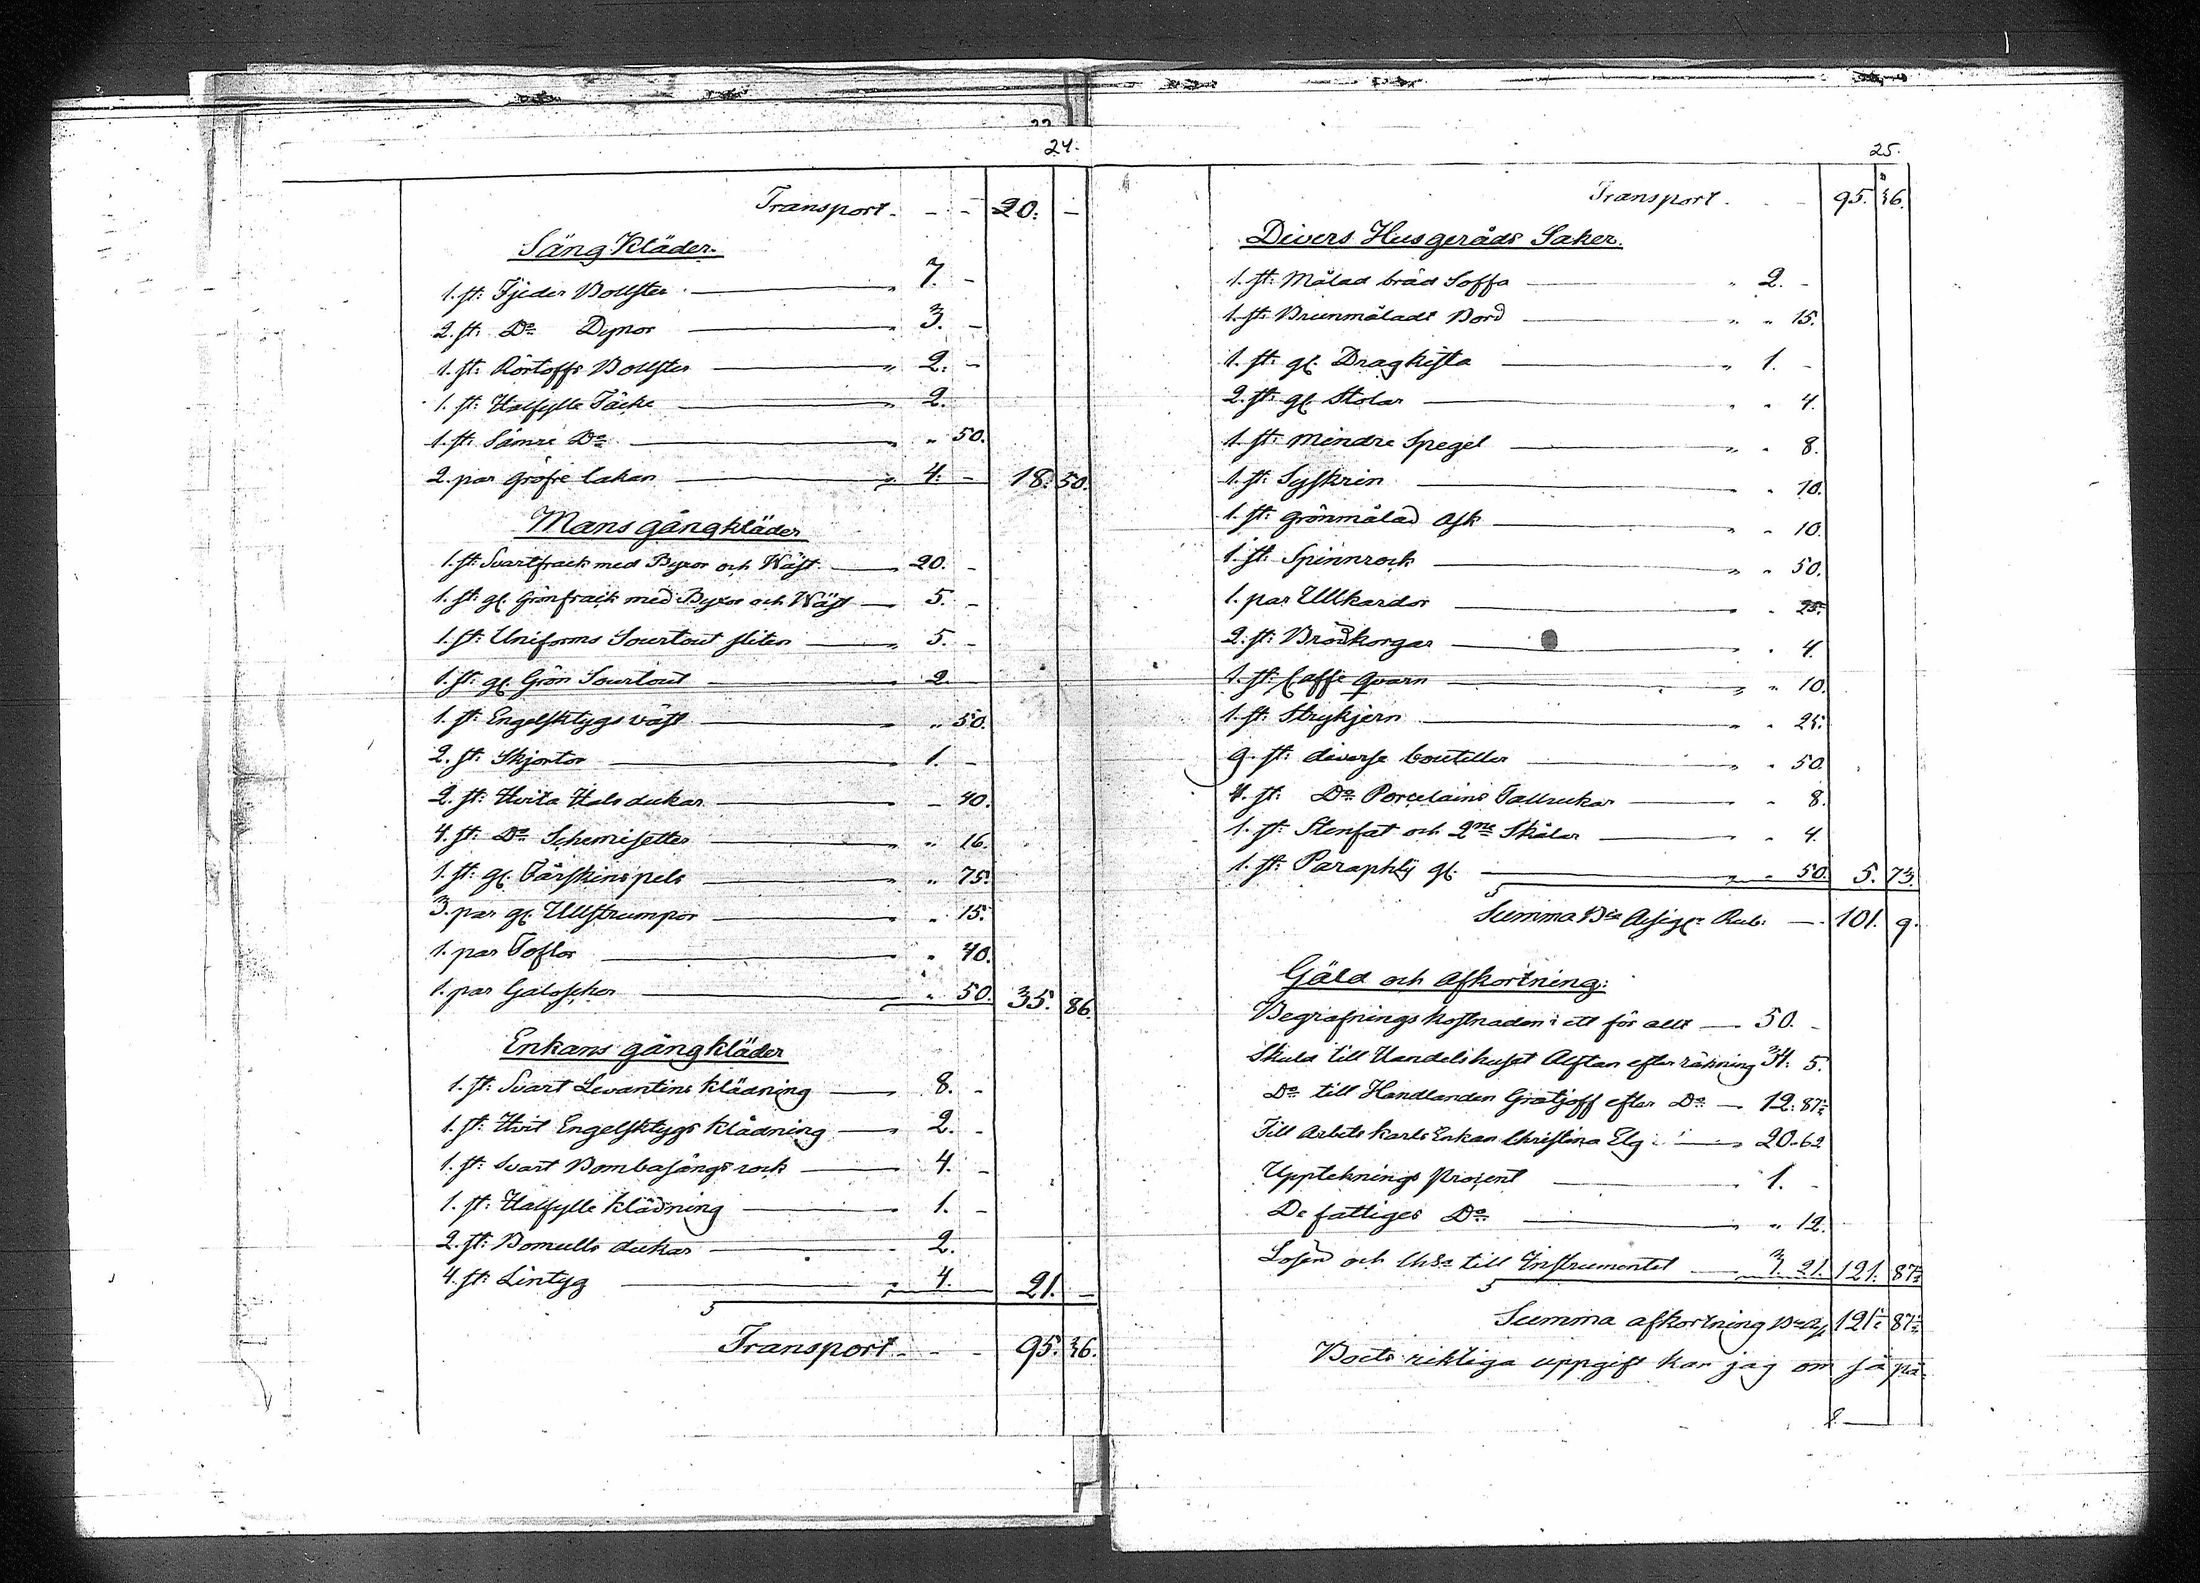 24.
Transport - - - 20. -
Säng Kläder.
1. st: Fjeder Bolster " 7. -
2. st: Do Dynor " 3. -
1. st: Rörtoffs Bolster " 2. -
1. st: Halfylle Täcke " 2.
1. st: Sämre Do " " 50.
2. par gröfre lakan " 4. - 18. 50.
Mans gångkläder
1. st: Svartfrack med Byxor och Wäst " 20. -
1. st: gl. Grönfrack med Byxor och Wäst 5. -
1. st: Uniforms Sourtout sliten " 5. -
1. st: gl. Grön Sourtout " 2
1. st: Engelsktygs väst " 50.
2. st: Skjortor " 1. -
2. st: Hvita Halsdukar " - 40.
4. st: Do Schemisetter " " 16.
1. st: gl. Fårskinspels " " 75.
3. par gl. Ullstrumpor " " 15.
1. par Toflor " 40.
1. par Galoscher " 50. 35. 86.
Enkans gångkläder
1. st: Svart Levantins Klädning " 8. -
1. st: Hvit Engelsktygs Klädning " 2. -
1. st: Svart Bombasångs rock " 4. -
1. st: Halfylle Klädning " 1. -
2. st: Bomulls dukar " 2.
4. st: Lintyg " 4. 21. -
Transport - - - 95. 36.
25.
Transport - - 95. 36.
Divers Husgeråds Saker.
1. st: Målad bräd Soffa " 2. -
1. st: Brunmåladt Bord " " 15.
1. st: gl. Dragkista " 1. -
2. st: gl. Stolar " " 4.
1. st: mindre Spegel " " 8.
1. st: Syskrin " 10.
1. st: grönmålad Ask " " 10.
1. st: Spinnrock " " 50.
1. par Ullkardor " 25.
2. st: Brödkorgar " " 4.
1. st: Caffe qvarn " " 10.
1. st: Strykjern " " 25.
9. st: diverse bouteller " " 50.
4. st: Do Porcelains Tallrickar " " 8.
1. st: Stenfat och 2ne Skålar " " 4.
1. st: Paraphly gl. " " 50. 5. 73.
Summa Bco Assigr Rub: 101. 9.
Gäld och afkortning:
Begrafnings kostnaden i ett för allt 50. -
Skuld till Handelshuset Alftan efter räkning 34. 5.
Do till Handlanden Gratjoff efter Do 12. 87
Till Arbetskarls Enkan Christina Elg " 20. 62
Upptekningsprocent " 1. -
De fattiges Do " " 12.
Lösen och Chta till Instrumentet 3. 21. 121. 87
Summa afkortning Bco A/s 121. 87
Boets riktiga uppgift kan jag om så på-